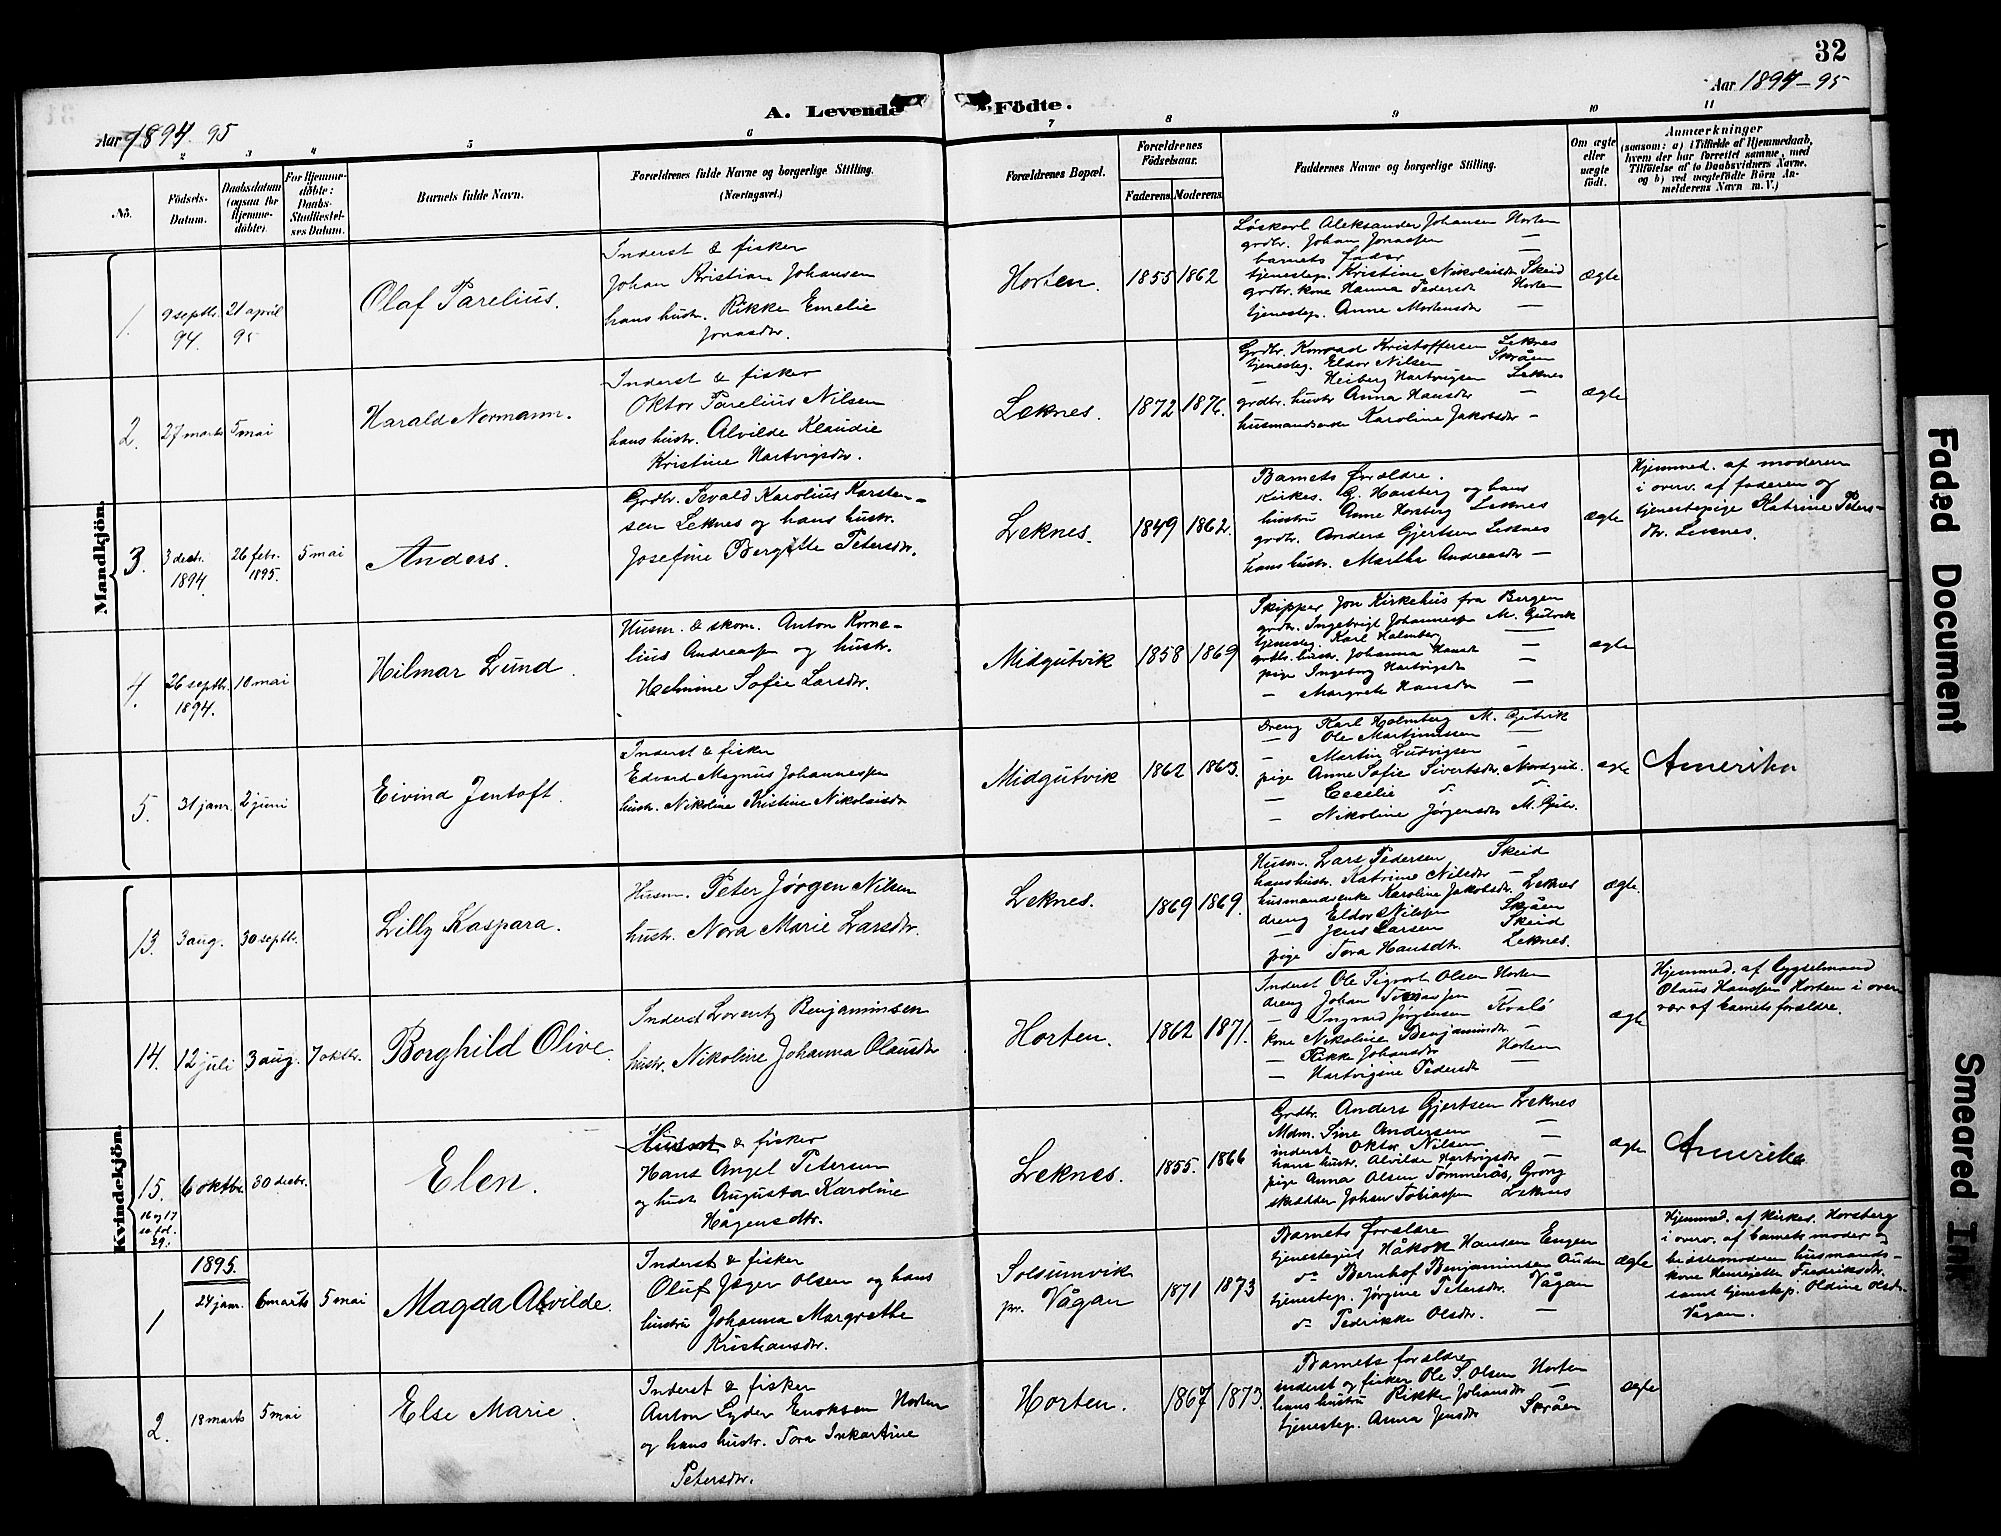 32
A. Levende Födte.
Aar 1894-95
Aar 1894-95
2 3 4 5 6 7 8 9 10 11
No.
Födsels-Datum.
Daabsdatum (ogsaa for Hjemme-døbte).
For Hjemme-döbte: Daabs-Stadfæstel-ses Datum.
Barnets fulde Navn.
Forældrenes fulde Navne og borgerlige Stilling. (Næringsvei.)
Forældrenes Bopæl.
Forældrenes Födselsaar.
Faderens. Moderens.
Faddernes Navne og borgerlige Stilling.
Om ægte eller uægte født.
Anmærkninger
(saasom: a) i Tilfælde af Hjemmedaab, hvem der har forrettet samme, med Tilföielse af to Daabsvidners Navne, og b) ved uægtefödte Börn An-melderens Navn m. V.)
Mandkjön.
1. 9 septbr. 94. 21 april 95
Olaf Parelius.
Inderst & fisker
Johan Kristian Johansen
hans hustr. Rikke Emelie
Jonasdtr.
Horten. 1855 1862
Løskarl Aleksander Johansen Horten
grdbr. Johan Jonassen —
barnets fader
tjenestep. Kristine Nikolaisdtr Skeid
grdbr. kone Hanna Pedersdtr Horten
tjenestep. Anne Mortensdtr —
ægte
2. 27 marts 5 mai
Harald Normann.
Inderst & fisker
Oktor Parelius Nilsen
hans hustr. Alvilde Klaudie
Kristine Hartvigsdtr.
Leknes. 1872 1876.
Grdbr. Konrad Kristoffersen Leknes
tjenesteg. Eldor Nilsen Skråen
— Heiberg Hartvigsen Leknes
grdbr. hustr Anna Hansdtr —
husmandsenke Karoline Jakobsdtr —
ægte
3. 3 decbr. 1894. 26 febr. 1895. 5 mai
Anders.
Grdbr. Sevald Karolius Karsten-
sen Leknes og hans hustr.
Josefine Bergitte Petersdtr.
Leknes. 1849 1862.
Barnets forældre.
Kirkes. G. Horsberg og hans
hustru Anne Horsberg Leknes
grdbr. Anders Gjertsen Leknes
hans hustr. Martha Andreasdtr —
ægte
Hjemmed. af moderen
i overv. af faderen og
tjenestepige Katrine Peters-
dtr. Leknes.
4. 26 septbr. 1894. 10 mai
Hilmar Lund.
Husm. & skom. Anton Korne-
lius Andreassen og hustr.
Helmine Sofie Larsdtr.
Midgutvik 1858 1869
Skipper Jon Kirkehus fra Bergen
grdbr. Ingebrigt Johannessen M. Gutvik
tjenesteg. Karl Holmberg —
grdbr. hustr. Johanna Hansdtr —
pige Ingeborg Hartvigsdtr —
— Margrete Hansdtr —
ægte
5. 31 janr. 2 juni
Eivind Jentoft.
Inderst & fisker
Edvard Magnus Johannessen
hustr. Nikoline Kristine Nikolaisdtr
Midgutvik 1862 1863.
Dreng Karl Holmberg M. Gutvik
— Ole Martinussen —
— Martin Ludvigsen —
pige Anne Sofie Sivertsdtr. Nordgut.
— Cecilie do. do.
— Nikoline Jørgensdtr M. Gutv.
ægte
Amerika
Kvindekjön.
13. 3 aug. 30 septbr.
Lilly Kaspara.
Husm. Peter Jørgen Nilsen
hustr. Nora Marie Larsdtr.
Leknes. 1869 1869.
Husm. Lars Pedersen Skeid
hans hustr. Katrine Nilsdtr —
husmandsenke Karoline Jakobsdtr. Leknes
dreng Eldor Nilssen Skråen
— Jens Larsen Skeid
pige Tora Hansdtr. Leknes.
ægte.
14. 12 juli 3 aug. 7 oktbr.
Borghild Olive.
Inderst Lorentz Benjaminsen
hustr. Nikoline Johanna Olausdtr
Horten. 1862 1871.
Inderst Ole Sigvart Olsen Horten
dreng Johan Tomassen —
— Ingvard Jørgensen Kvalø
kone Nikoline Benjamindtr. —
— Rikke Johansdtr Horten
— Hartvigine Pedersdtr —
ægte
Hjemmed. af Lygselmand
Olaus Hanssen Horten i over
vær af barnets forældre.
15. 6 oktbr. 30 decbr.
16 og 17
se fol.
29.
Elen.
Husmt & fisker
Hans Angel Petersen
og hustr Augusta Karoline
Hågensdtr.
Leknes. 1855. 1866
Grdbr. Anders Gjertsen Leknes
Mdm. Sine Andersen —
inderst Oktor Nilsen —
hans hustr. Alvilde Hartvigsdtr —
pige Anna Olsen Tømmerås, Grong
skrædder Johan Tobiassen Leknes
ægte
Amerika
1895.
1 24 janr. 6 marts 5 mai
Magda Alvilde.
Inderst & fisker
Oluf Jæger Olsen og hans
hustru Johanna Margrethe
Kristiansdtr.
Solsumvik
pr. Vågan 1871 1873
Barnets forældre
tjenestegut Håkon Hansen Engen
do Bernhof Benjaminsen
tjenestep. Jørgine Petersdtr. Vågan
do Pedrikke Olsdtr. —
ægte
Hjemmed. af Kirkes. Horsberg
i overv. af barnets moder og
bedstemoderen husmands-
kone Henrijette Fredriksdtr.
samt tjenestep. Oldine Olsdtr.
Vågan.
2. 18 marts 5 mai
Else Marie.
Inderst & fisker
Anton Lyder Enoksen Horten
og hans hustr. Tora Inkartine
Petersdtr.
Horten. 1867 1873.
Barnets forældre
inderst og fisker Ole S. Olsen Horten
hans hustru Rikke Johansdtr —
tjenestep. Anna Jensdtr Skråen
ægte
Faded Document
Smeared Ink